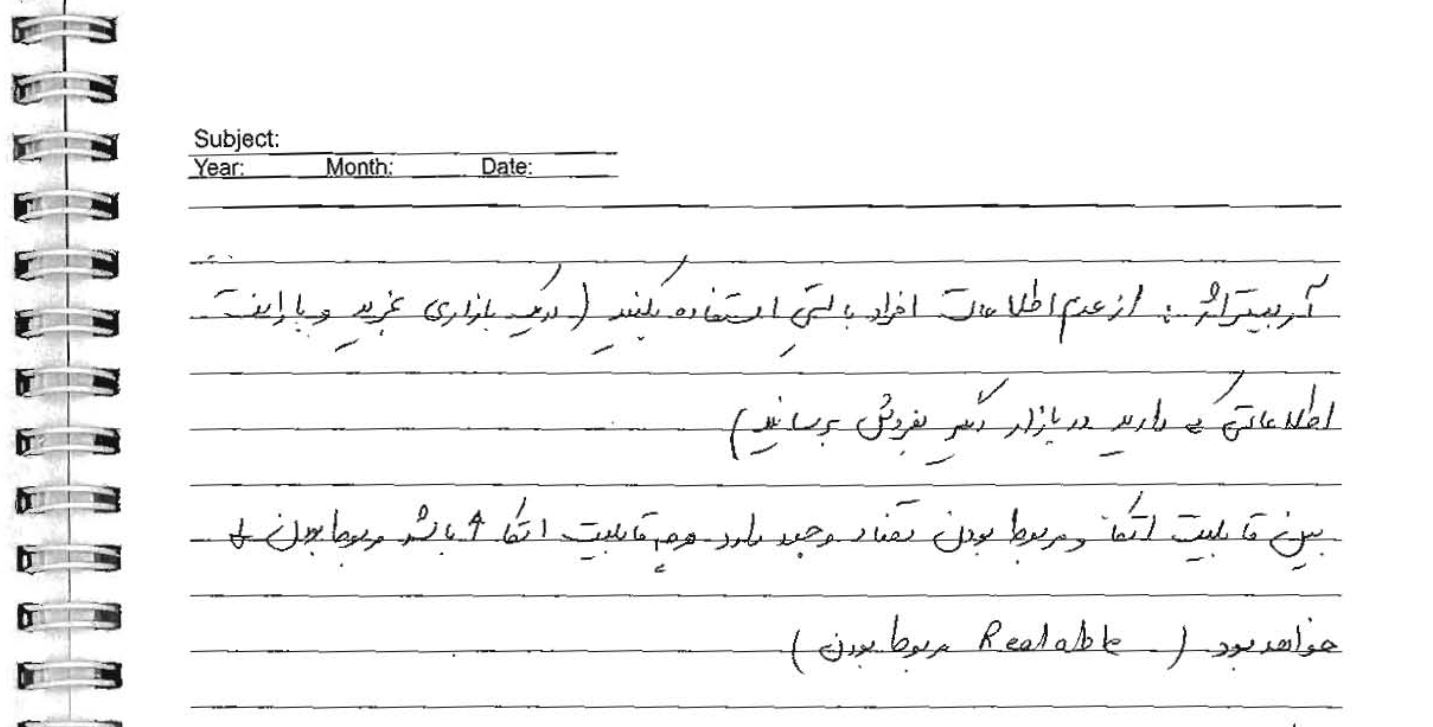 Subject:
Year: Month: Date:
آربیتراژ : از عدم اطلاعات افراد بایستی استفاده بکنید ( در یک بازاری خرید و با این
اطلاعاتی که دارید در بازار دیگر بفروش برسانید )
بین قابلیت اتکا و مربوط بودن تضاد وجود دارد هرچه قابلیت اتکا ↑ باشد مربوط بودن ↓
خواهد بود ( Realable مربوط بودن )